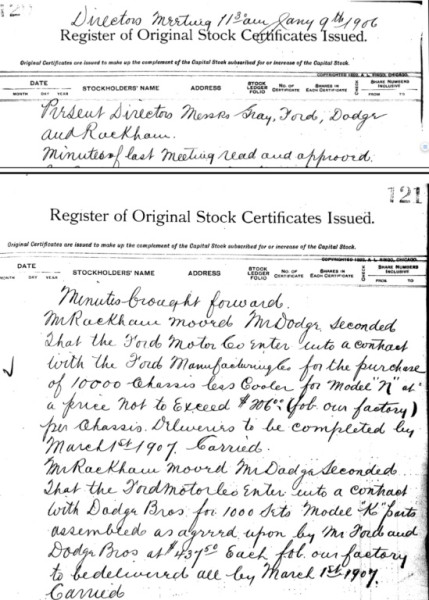 120
Directors Meeting 11 30 am Jany 9th 1906
Register of Original Stock Certificates Issued.
Original Certificates are issued to make up the complement of the Capital Stock subscribed for or increase of the Capital Stock.
DATE
MONTH DAY YEAR
STOCKHOLDERS' NAME
ADDRESS
STOCK LEDGER FOLIO
No. OF CERTIFICATE
SHARES IN EACH CERTIFICATE
SHARE NUMBERS INCLUSIVE
FROM TO
Present Directors Messrs Gray, Ford, Dodge
and Rackham.
Minutes of last Meeting read and approved.
121
Register of Original Stock Certificates Issued.
Original Certificates are issued to make up the complement of the Capital Stock subscribed for or increase of the Capital Stock.
DATE
MONTH DAY YEAR
STOCKHOLDERS' NAME
ADDRESS
STOCK LEDGER FOLIO
No. OF CERTIFICATE
SHARES IN EACH CERTIFICATE
SHARE NUMBERS INCLUSIVE
FROM TO
Minutes brought forward.
Mr Rackham moved Mr Dodge seconded
That the Ford Motor Co Enter into a contract
with the Ford Manufacturing Co for the purchase
of 10000 Chassis less Cooler for Model "N" at
a price not to Exceed $206.00 (fob. our factory)
per Chassis. Deliveries to be completed by
March 1st 1907. Carried.
Mr Rackham moved Mr Dodge Seconded
That the Ford Motor Co Enter into a contract
with Dodge Bros for 1000 Sets Model "K" parts
assembled as agreed upon by Mr Ford and
Dodge Bros at $437.50 Each fob. our factory
to be delivered all by March 1st 1907.
Carried